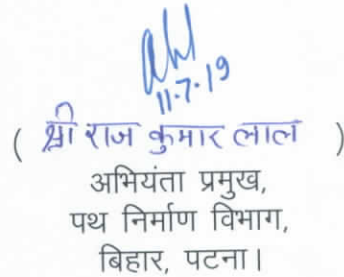 11.7.19
( श्री राज कुमार लाल )
अभियंता प्रमुख,
पथ निर्माण विभाग,
बिहार, पटना।